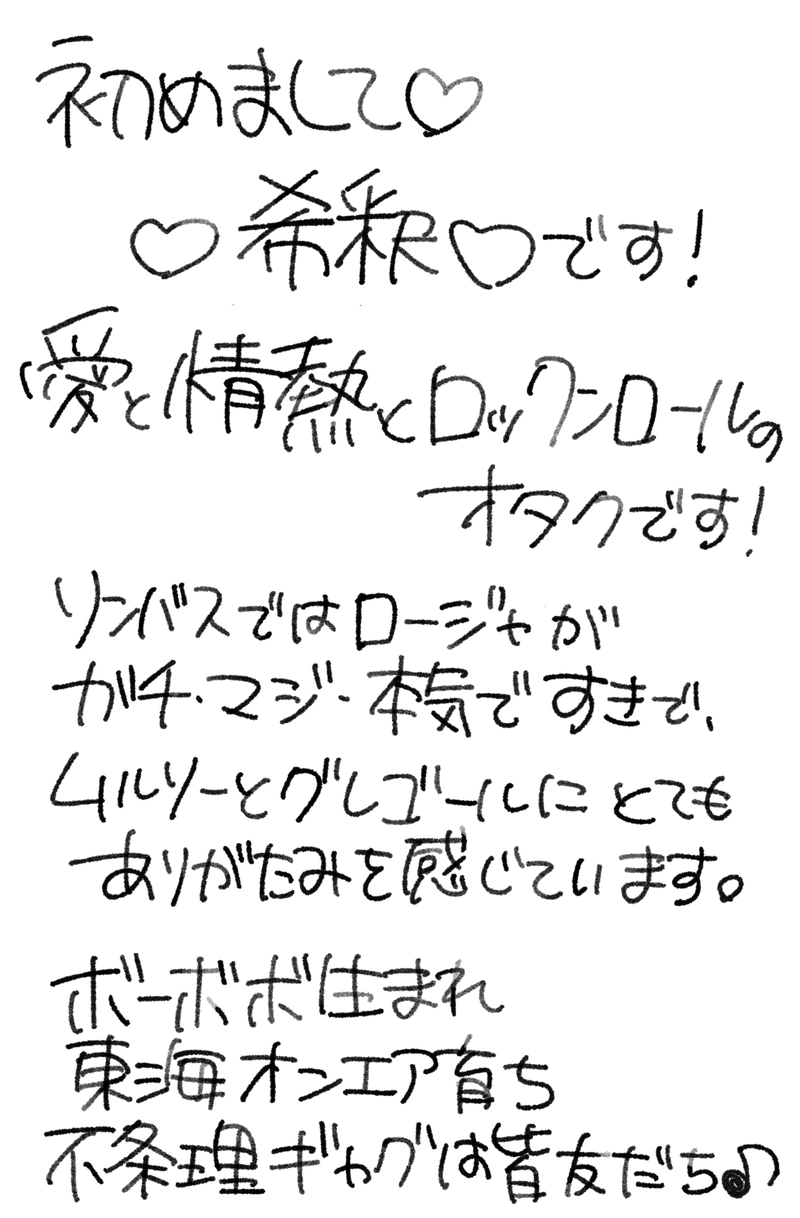 初めまして♡
♡希釈♡です!
愛と情熱とロックンロールの
オタクです!
リンバスではロージャが
ガチ・マジ・本気ですきで、
ムルソーとグレゴールにとても
ありがたみを感じています。
ボーボボ生まれ
東海オンエア育ち
不条理ギャグは皆友だち♪